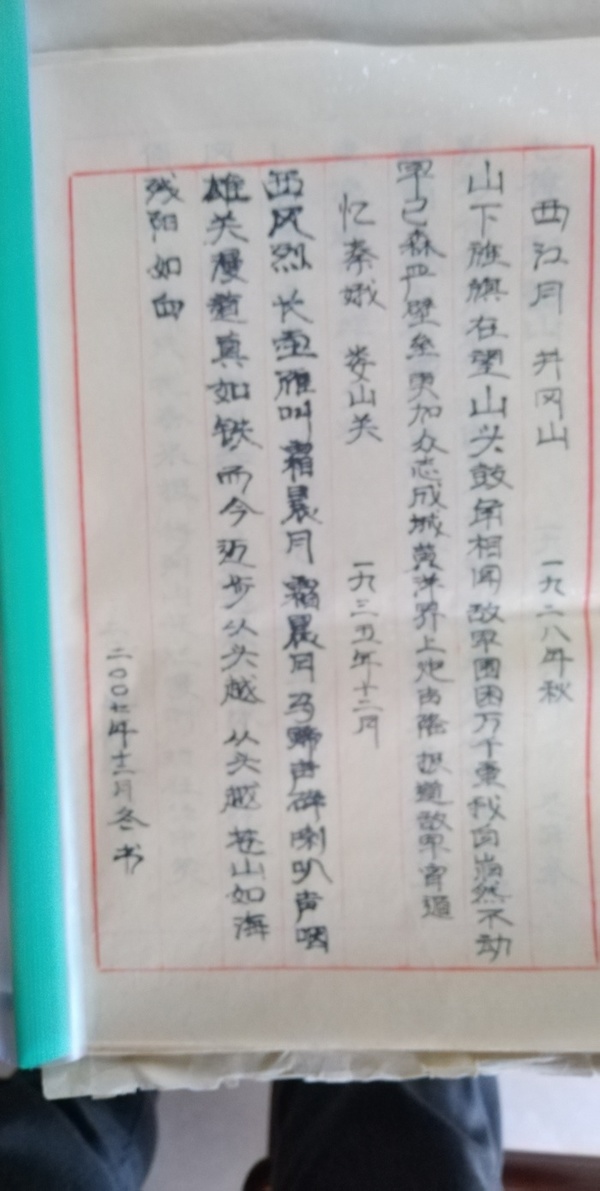 西江月 井冈山 一九二八年秋
山下旌旗在望山头鼓角相闻敌军围困万千重我自岿然不动
早已森严壁垒更加众志成城黄洋界上炮声隆报道敌军宵遁
忆秦娥 娄山关 一九三五年十二月
西风烈 长空雁叫霜晨月 霜晨月马蹄声碎喇叭声咽
雄关漫道真如铁而今迈步从头越 从头越苍山如海
残阳如血
二〇〇七年十二月冬书